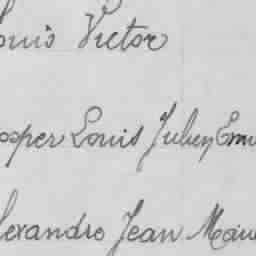 ouis Victor
osper Louis Julien Emi
lexandre Jean Mau